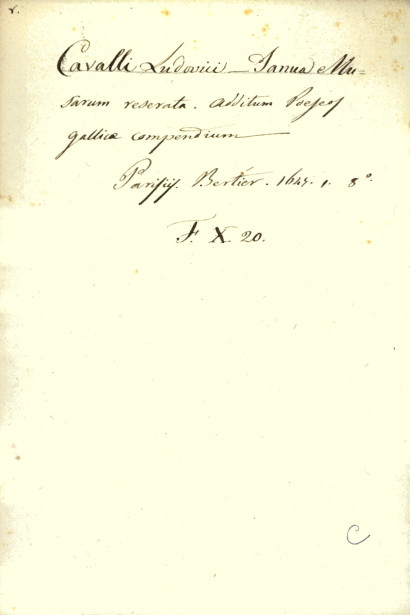 r.
Cavalli Ludovici – Janua Mu=
sarum reserata. additum Poeseos
gallicæ compendium
Parisijs. Bertier. 1645. 1. 8º.
F. X. 20.
C